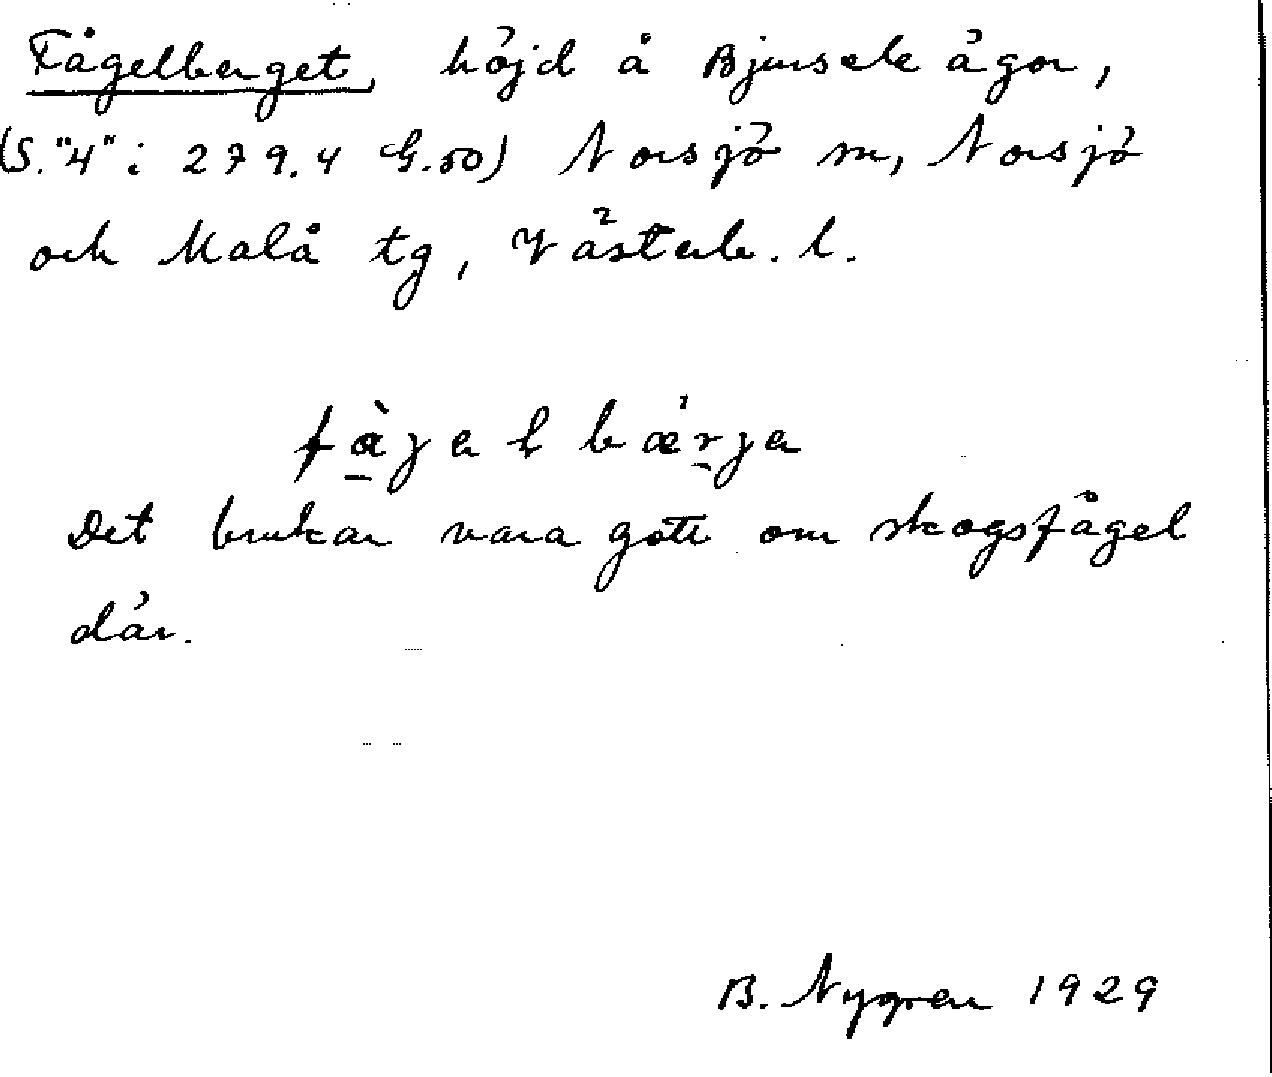 Fågelberget, höjd å Bjursele ägor,
(S. "4" : 279.4 G.50) Norsjö sn, Norsjö
och Malå tg, Västerb. l.
fà̱jelbæ´rje
Det brukar vara gott om skogsfågel
där.
B. Nygren 1929